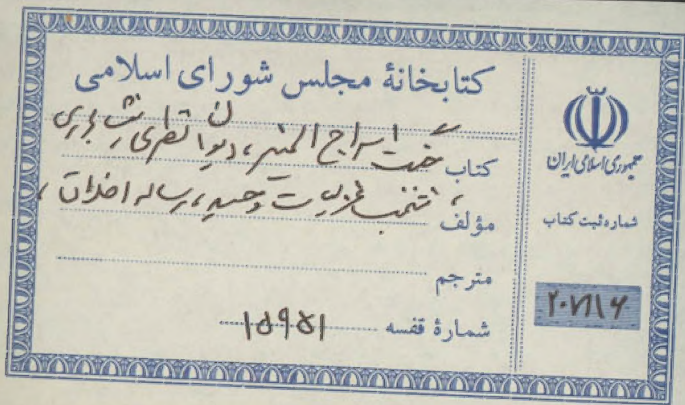 کتابخانهٔ مجلس شورای اسلامی
کتاب سراج المنیر، دیوان نظیری نیشابوری
، منتخب غزلیات وحید، رساله اخلاق،
مؤلف
مترجم
شمارهٔ قفسه ۱۵۹۵۱
جمهوری اسلامی ایران
شماره ثبت کتاب
۲۰۷۸۱۶